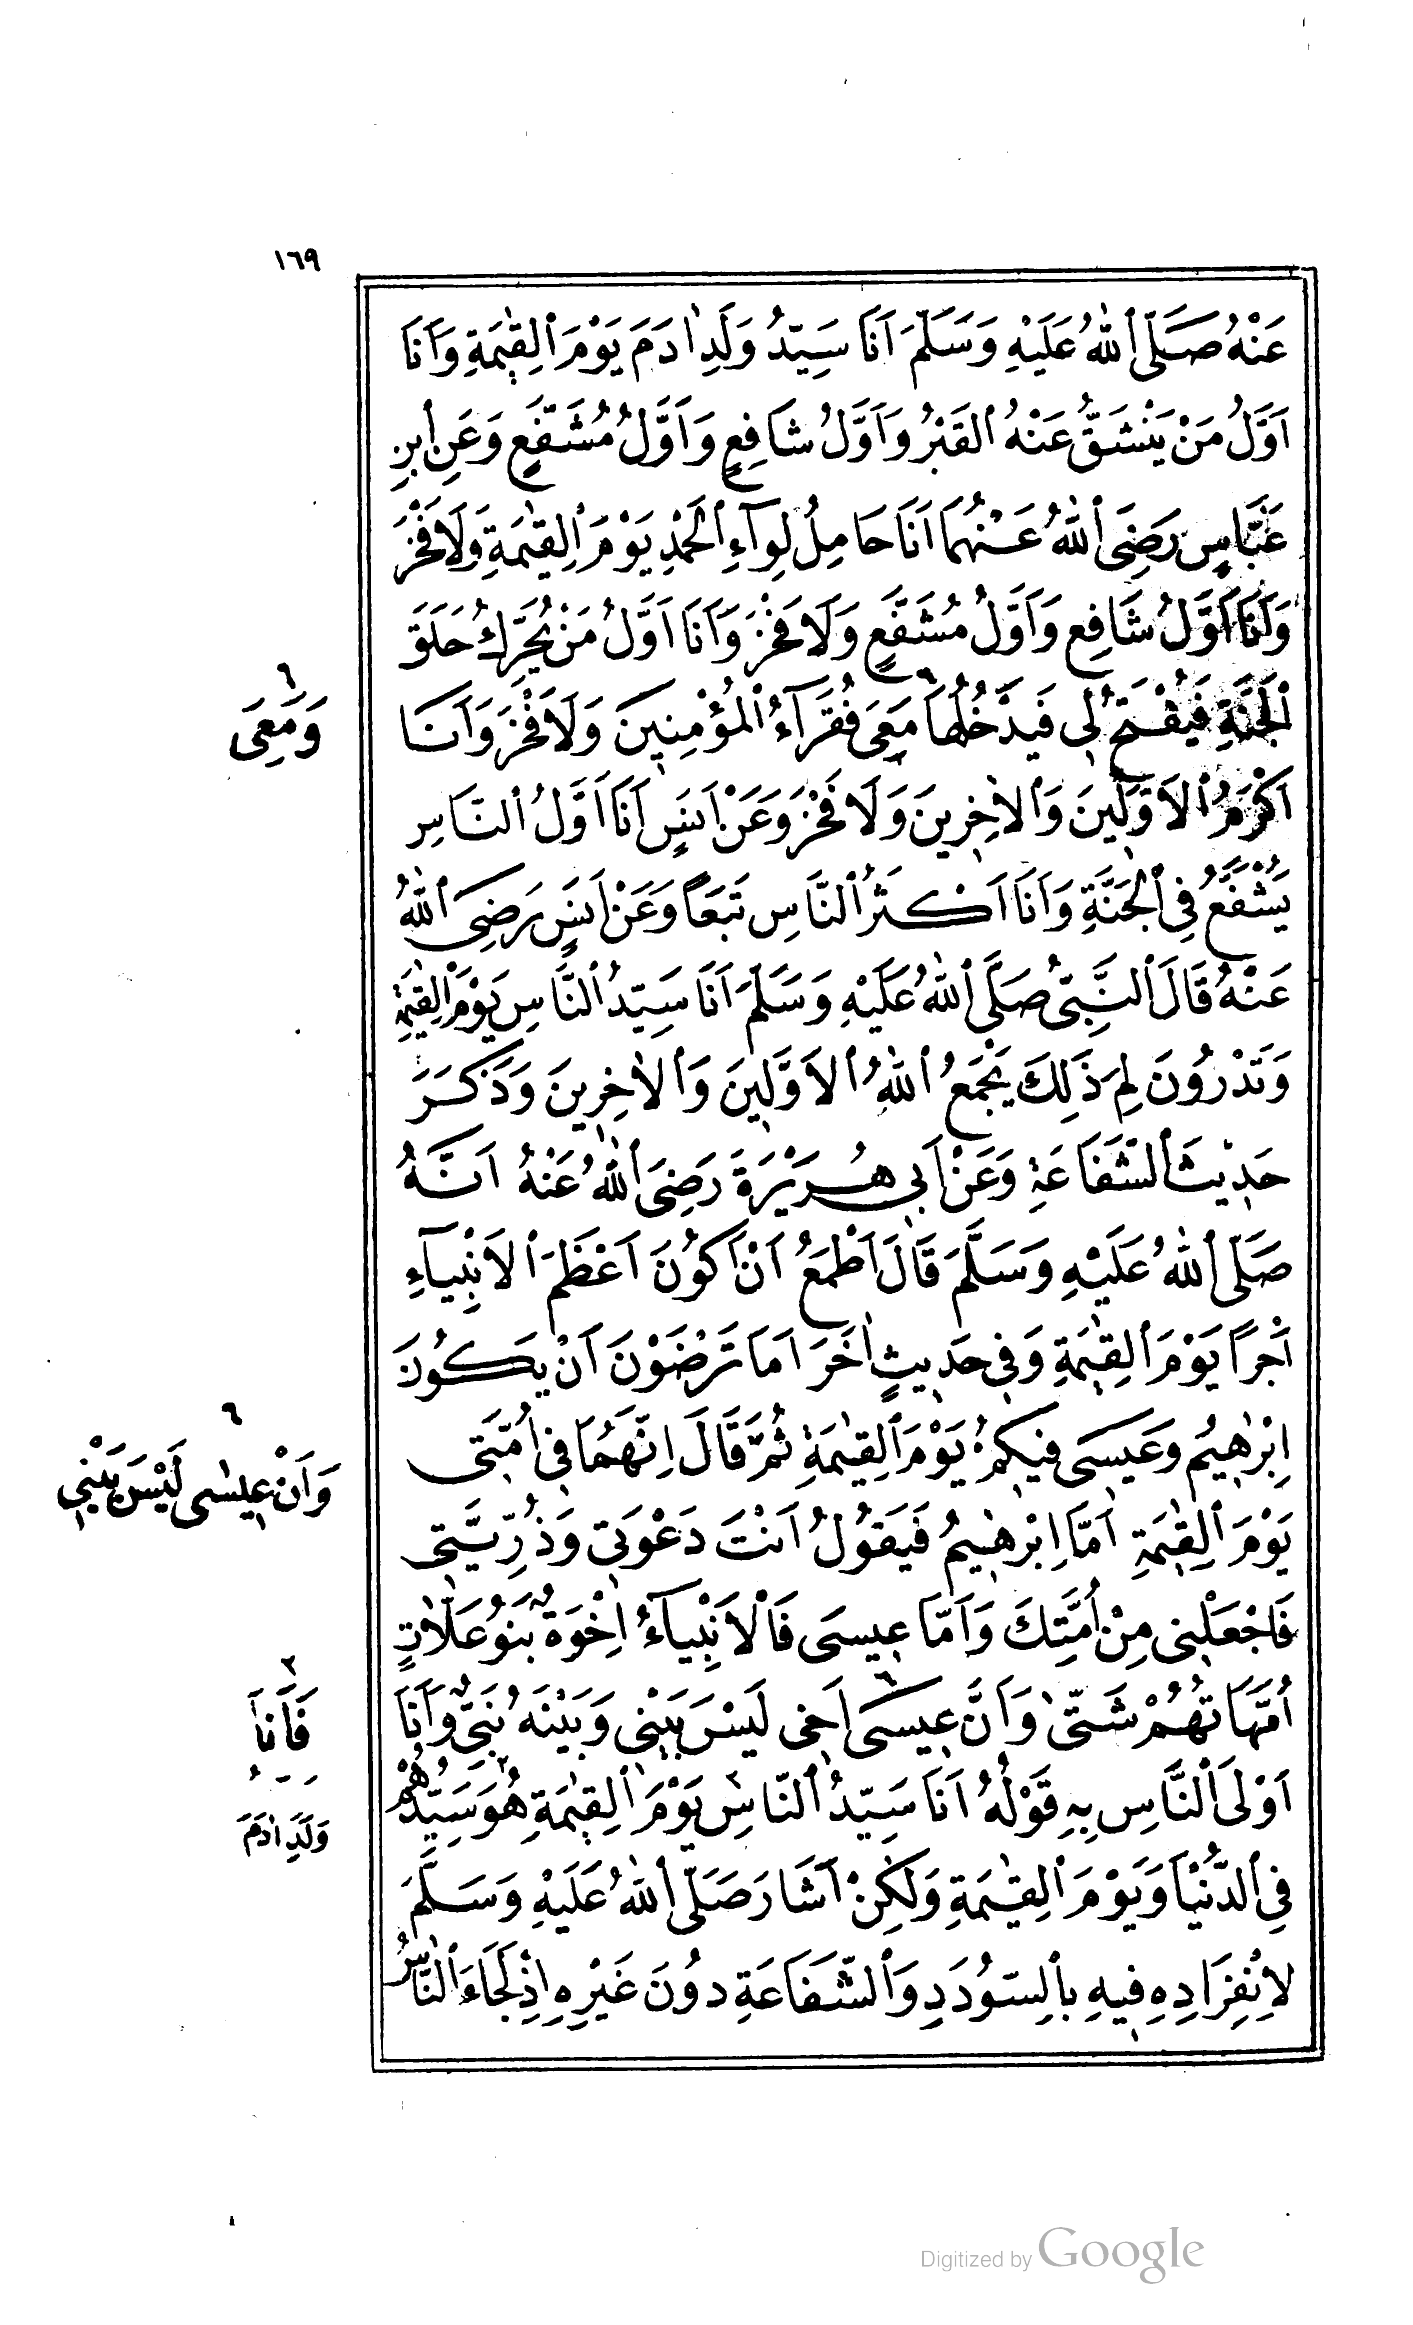 ١٦٩
عَنْهُ صَلَّى اللهُ عَلَيْهِ وَسَلَّمَ اَنَا سَيِّدُ وَلَدِ اٰدَمَ يَوْمَ الْقِيٰمَةِ وَاَنَا
اَوَّلُ مَنْ يَنْشَقُّ عَنْهُ الْقَبْرُ وَاَوَّلُ شَافِعٍ وَاَوَّلُ مُشَفَّعٍ وَعَنِ ابْنِ
عَبَّاسٍ رَضِىَ اللهُ عَنْهُمَا اَنَا حَامِلُ لِوَآءِ الْحَمْدِ يَوْمَ الْقِيٰمَةِ وَلَا فَخْرَ
وَاَنَا اَوَّلُ شَافِعٍ وَاَوَّلُ مُشَفَّعٍ وَلَا فَخْرَ وَاَنَا اَوَّلُ مَنْ يُحَرِّكُ حَلَقَ
الْجَنَّةِ فَيُفْتَحُ لِى فَيَدْخُلُهَا ٦ مَعِىَ فُقَرَآءُ الْمُؤْمِنِينَ وَلَا فَخْرَ وَاَنَا
اَكْرَمُ الْاَوَّلِينَ وَالْاٰخِرِينَ وَلَا فَخْرَ وَعَنْ اَنَسٍ اَنَا اَوَّلُ النَّاسِ
يَشْفَعُ فِى الْجَنَّةِ وَاَنَا اَكْثَرُ النَّاسِ تَبَعًا وَعَنْ اَنَسٍ رَضِىَ اللهُ
عَنْهُ قَالَ النَّبِىُّ صَلَّى اللهُ عَلَيْهِ وَسَلَّمَ اَنَا سَيِّدُ النَّاسِ يَوْمَ الْقِيٰمَةِ
وَتَدْرُونَ لِمَ ذٰلِكَ يَجْمَعُ اللهُ الْاَوَّلِينَ وَالْاٰخِرِينَ وَذَكَرَ
حَدِيثَ الشَّفَاعَةِ وَعَنْ اَبِى هُرَيْرَةَ رَضِىَ اللهُ عَنْهُ اَنَّهُ
صَلَّى اللهُ عَلَيْهِ وَسَلَّمَ قَالَ اَطْمَعُ اَنْ اَكُونَ اَعْظَمَ الْاَنْبِيَآءِ
اَجْرًا يَوْمَ الْقِيٰمَةِ وَفِى حَدِيثٍ اٰخَرَ اَمَا تَرْضَوْنَ اَنْ يَكُونَ
اِبْرٰهِيمُ وَعِيسَى فِيكُمْ يَوْمَ الْقِيٰمَةِ ثُمَّ قَالَ اِنَّهُمَا فِى اُمَّتِى
يَوْمَ الْقِيٰمَةِ اَمَّا اِبْرٰهِيمُ فَيَقُولُ اَنْتَ دَعْوَتِى وَذُرِّيَّتِى
فَاجْعَلْنِى مِنْ اُمَّتِكَ وَاَمَّا عِيسَى فَالْاَنْبِيَآءُ اِخْوَةٌ بَنُو عَلَّاتٍ
اُمَّهَاتُهُمْ شَتّٰى وَاَنَّ عِيسَى ٦ اَخِى لَيْسَ بَيْنِى وَبَيْنَهُ نَبِىٌّ وَاَنَا
اَوْلَى النَّاسِ بِهِ قَوْلُهُ اَنَا سَيِّدُ النَّاسِ يَوْمَ الْقِيٰمَةِ هُوَ سَيِّدُهُمْ
فِى الدُّنْيَا وَيَوْمَ الْقِيٰمَةِ وَلٰكِنْ اَشَارَ صَلَّى اللهُ عَلَيْهِ وَسَلَّمَ
لِانْفِرَادِهِ فِيهِ بِالسُّودَدِ وَالشَّفَاعَةِ دُونَ غَيْرِهِ اِذْ لَجَاءَ النَّاسُ
٦
وَمَعِى
٦
وَاَنْ عِيسٰى لَيْسَ بَيْنِى
٢
فَاَنَا
وَلَدِ اٰدَمَ
Digitized by Google